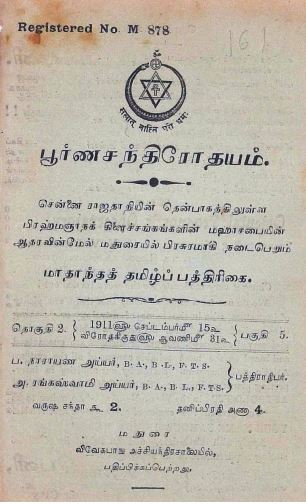 Registered No. M 878
161
सत्यात् नास्ति परो धर्मः
பூர்ணசந்திரோதயம்.
சென்னை ராஜதானியின் தென்பாகத்திலுள்ள
பிரஹ்மஞானக் கிளைச்சங்கங்களின் மஹாசபையின்
ஆதரவின்மேல் மதுரையில் பிரசுரமாகி நடைபெறும்
மாதாந்தத் தமிழ்ப் பத்திரிகை.
தொகுதி 2. 1911௵ செப்டம்பர்௴ 15௳ பகுதி 5.
விரோதகிருது௵ ஆவணி௴ 31௳
ப. நாராயண அய்யர், B. A., B. L., F. T. S.
பத்திராதிபர்.
அ. ரங்கஸ்வாமி அய்யர், B. A., B. L., F. T. S.
வருஷ சந்தா ரூ 2. தனிப்பிரதி அணா 4.
மதுரை
விவேகபாநு அச்சியந்திரசாலையில்,
பதிப்பிக்கப்பெற்றது.